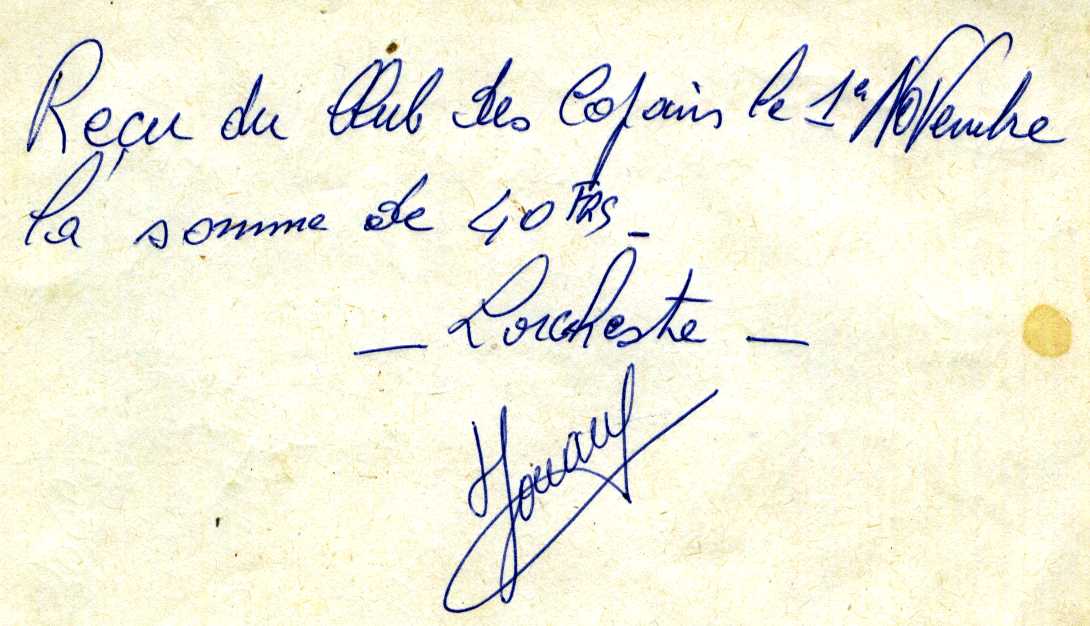 Reçu du Club des Copains le 1er Novembre
la somme de 40 FRS_
— L'orchestre —